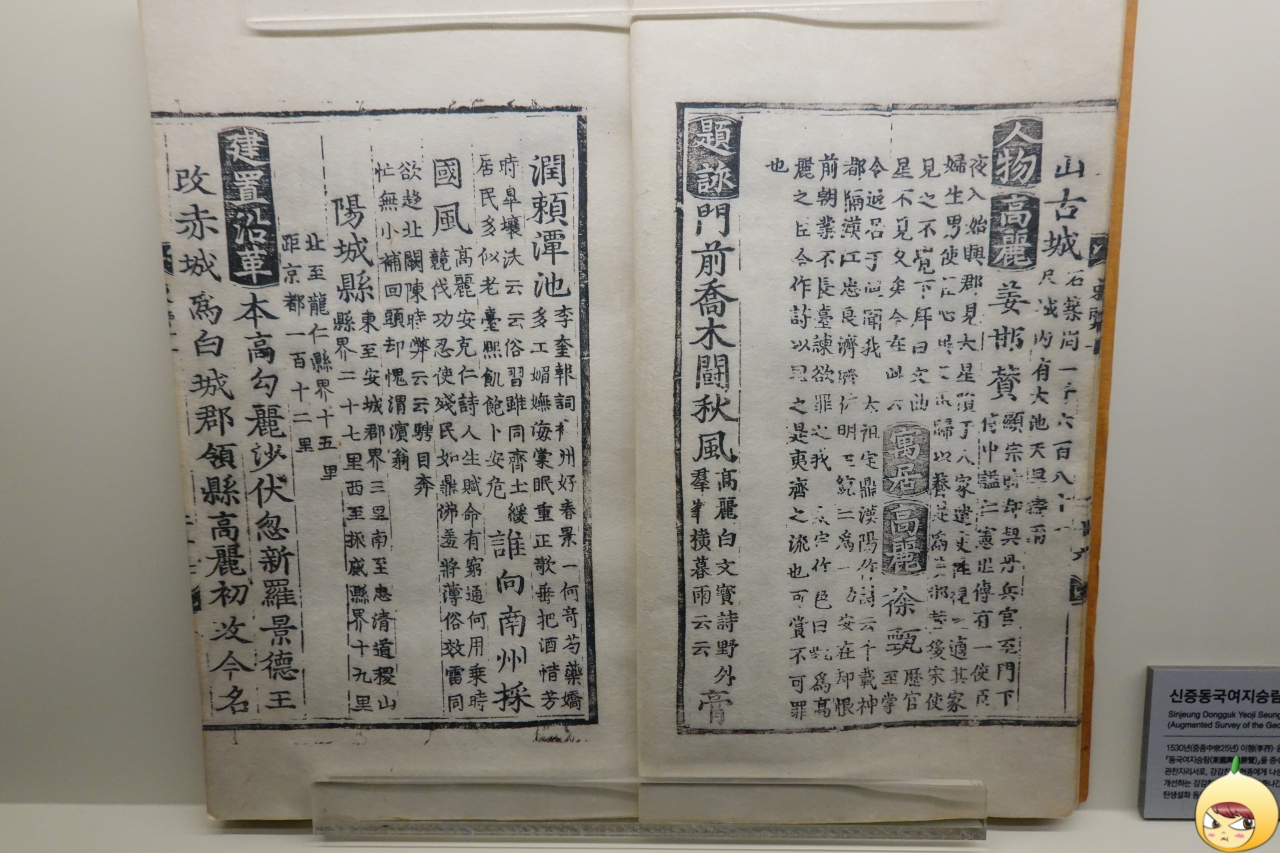 山古城石築周一千六百八十
尺城內有大池天旱禱雨
人物 高麗 姜邯贊顯宗時却契丹兵官至門下
侍中謚仁憲世傳有一使臣
夜入始興郡見大星隕于人家遣吏往視之適其家
婦生男使臣心異之取歸以養是爲邯贊後宋使
見之不覺下拜曰文曲
星不見久矣今在此云 寓居 高麗 徐甄歷官
至掌
令退居于衿聞我太祖定鼎漢陽作詩云千載神
都隔漢江忠良濟濟佐明王統三爲一功安在却恨
前朝業不長臺諫欲罪之我太宗作色曰甄爲高
麗之臣今作詩以思之是夷齊之流也可賞不可罪
也
題詠 門前喬木鬪秋風高麗白文寶詩野外
羣峯橫暮雨云云 膏
潤頼潭池李奎報詞州好春景一何奇芍藥嬌
多工媚嫵海棠眠重正欹垂把酒惜芳
時皐壤沃云云俗習雖同齊土緩
居民多似老臺熙飢飽卜安危 誰向南州採
國風高麗安克仁詩人生賦命有窮通何用乗時
競伐功忍使殘民如鼎沸盍將薄俗效雷同
欲趍北闕陳時弊云云騁目奔
忙無小補回頭却愧渭濱翁
陽城縣東至安城郡界三里南至忠清道稷山
縣界二十七里西至振威縣界十九里
北至龍仁縣界十五里
距京都一百十二里
建置沿革 本高勾麗沙伏忽新羅景德王
改赤城爲白城郡領縣高麗初改今名
신증동국여지승람
Sinjeung Dongguk Yeoji Seung
(Augmented Survey of the Geo
1530년(중종中宗25년) 이행(李荇)·
『동국여지승람(東國輿地勝覽)』을 증수
관찬지리서로, 강감찬
개선하는 강감
탄생설화